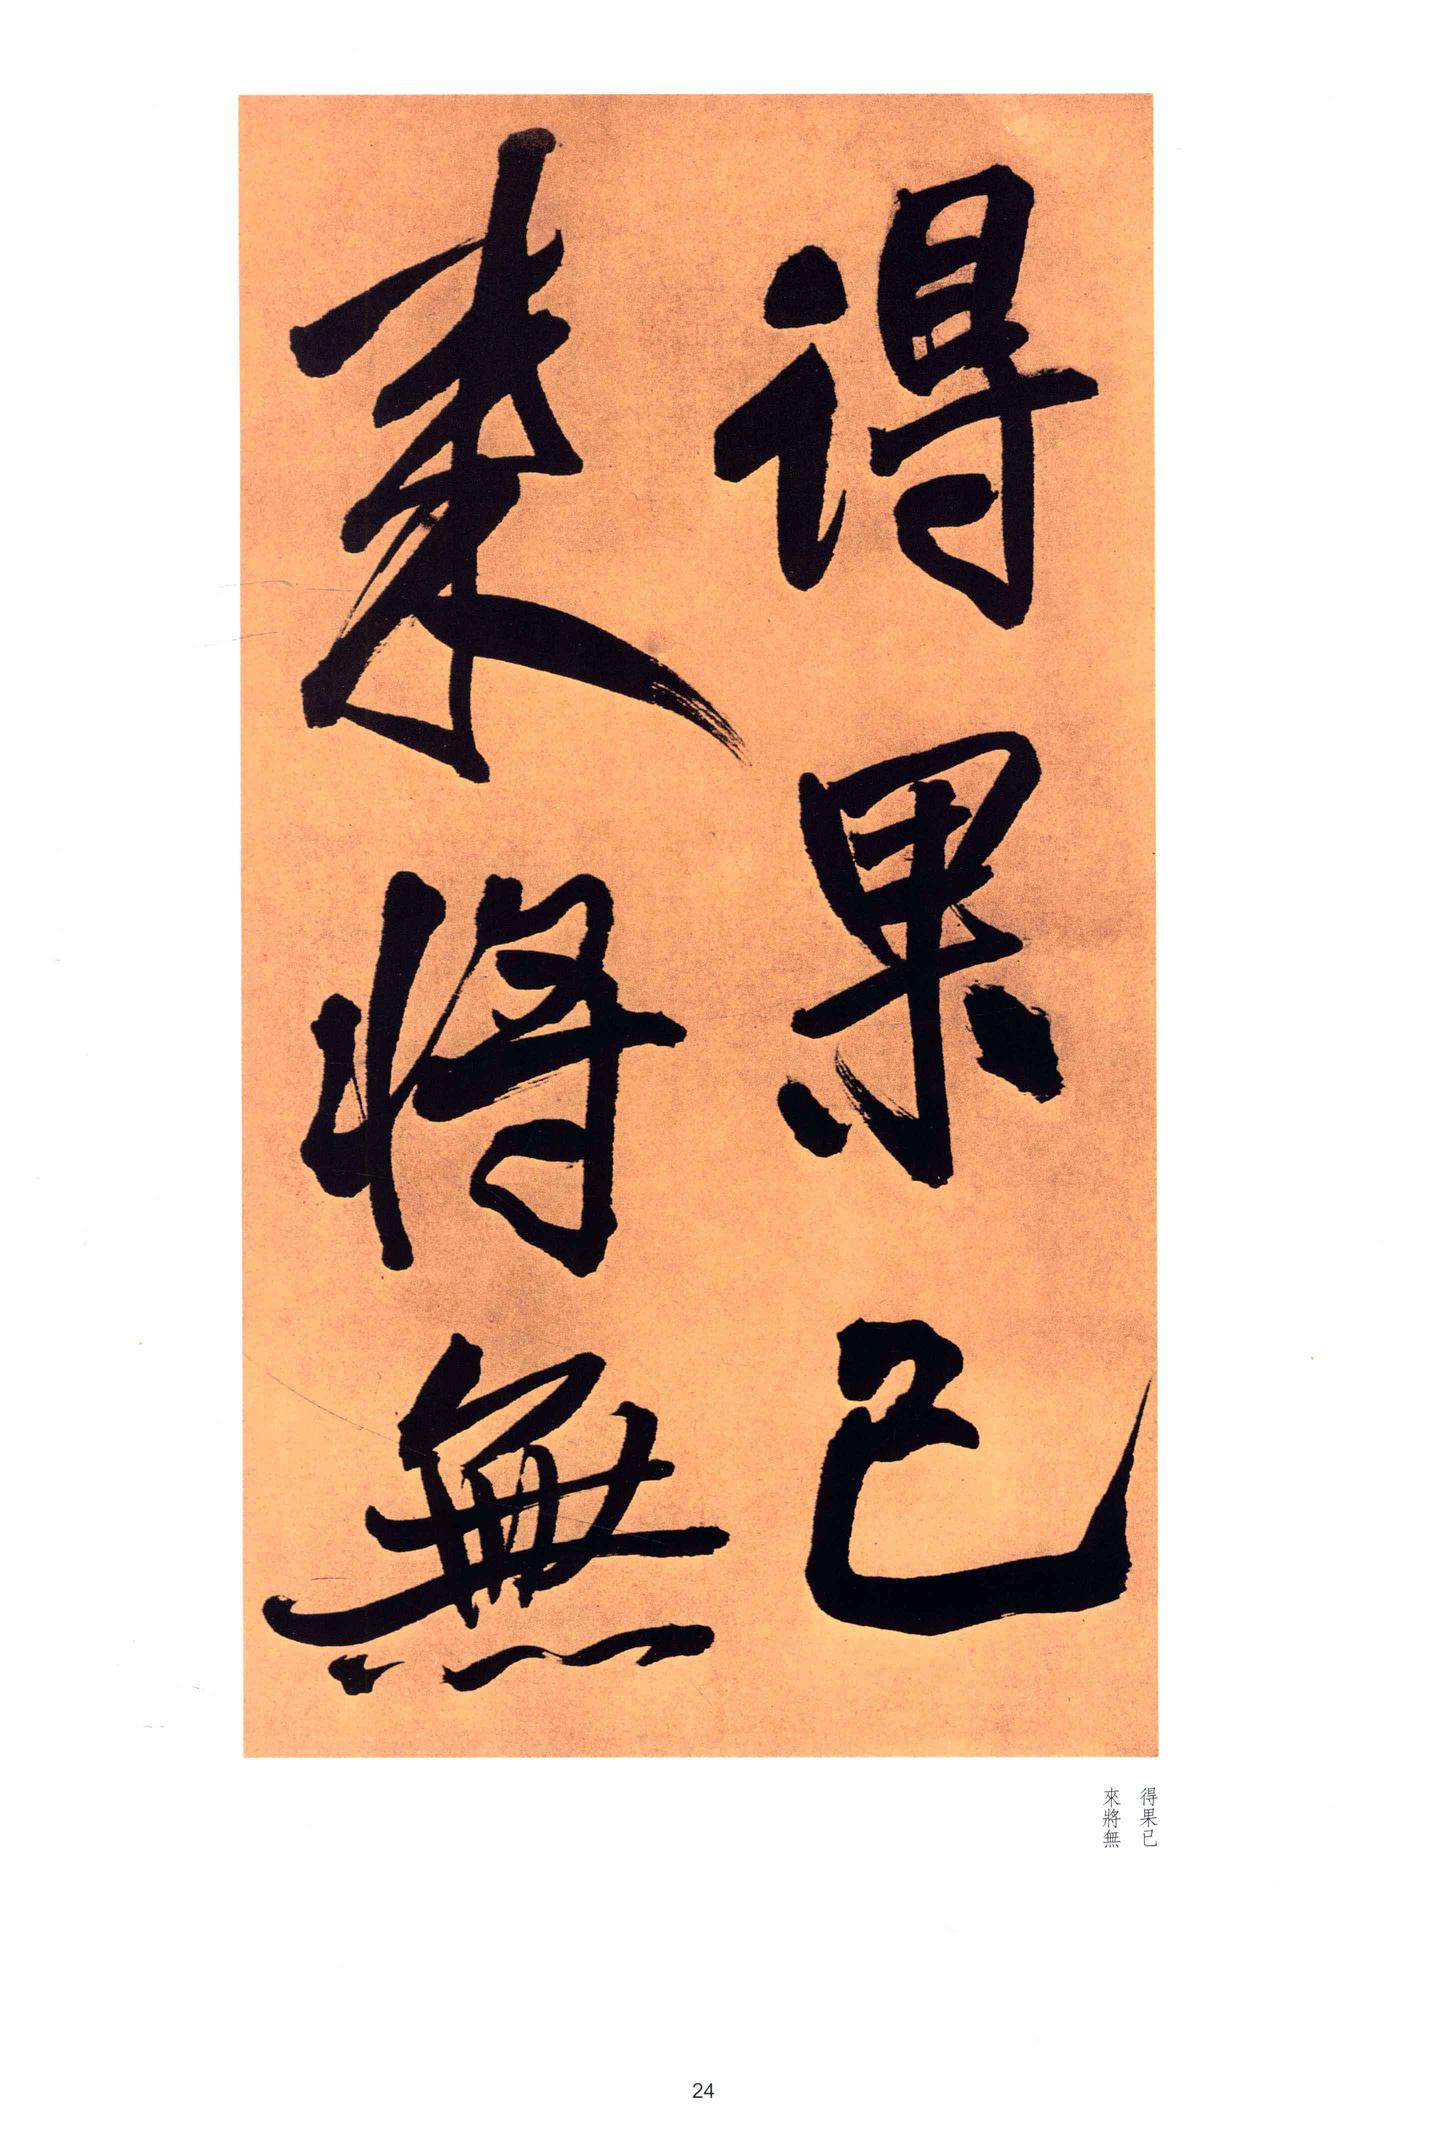 得果已
來將無
得果已
來將無
24